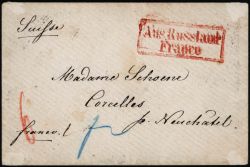 Suisse
Aus Russland
Franco
Madame Schoene
Corcelles
franco. p. Neuchâtel